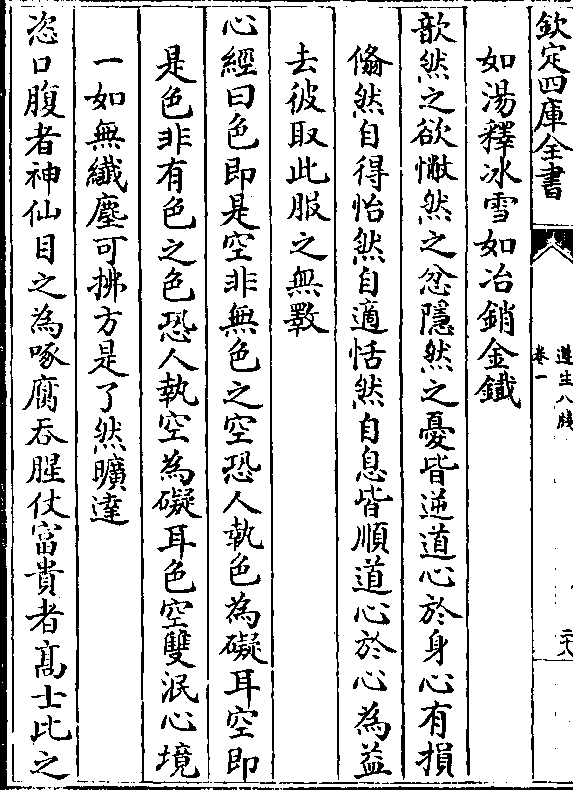 欽定四庫全書
遵生八牋
卷一
二十八
如湯釋冰雪如冶銷金鐵
歆然之欲憱然之忿隱然之憂皆逆道心於身心有損
翛然自得怡然自適恬然自息皆順道心於心為益
去彼取此服之無斁
心經曰色即是空非無色之空恐人執色為礙耳空即
是色非有色之色恐人執空為礙耳色空雙泯心境
一如無纖塵可拂方是了然曠達
恣口腹者神仙目之為啄腐吞腥仗富貴者高士比之